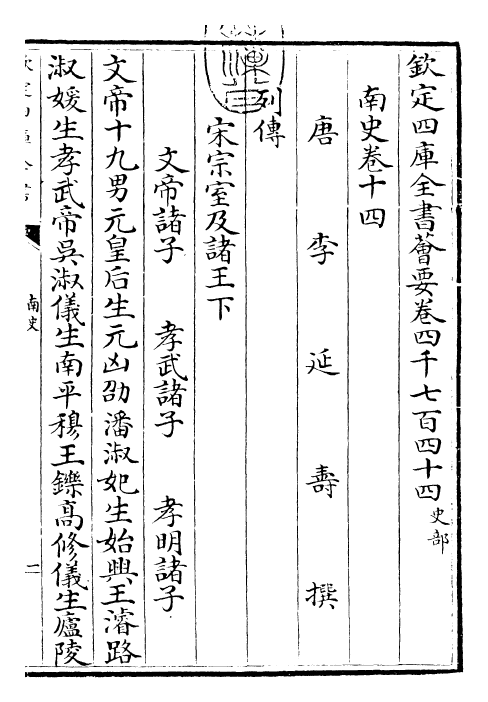 欽定四庫全書薈要卷四千七百四十四史部
南史卷十四
唐李延壽撰
列傳
宋宗室及諸王下
文帝諸子 孝武諸子 孝明諸子
文帝十九男元皇后生元凶劭潘淑妃生始興王濬路
淑媛生孝武帝吳淑儀生南平穆王鑠高修儀生廬陵
南史